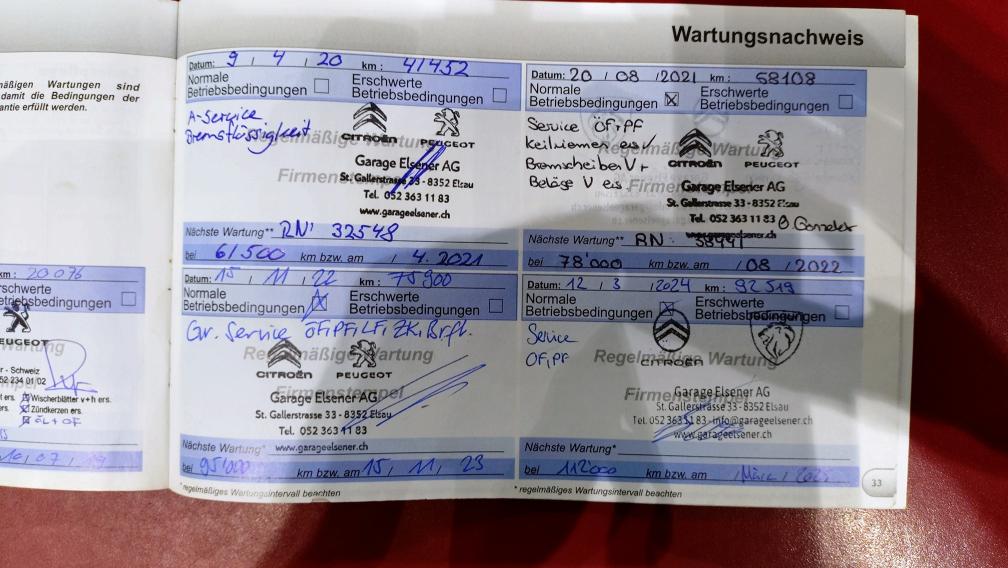 Wartungsnachweis
mäßigen Wartungen sind
damit die Bedingungen der
antie erfüllt werden.
km: 20 076
schwerte
etriebsbedingungen
PEUGEOT
- Schweiz
52 234 01 02
ers. Wischerblätter v+h ers.
ers. Zündkerzen ers.
ÖL+ÖF
10, 07, 19
Datum: 9 / 4 / 20 km: 41452
Normale Betriebsbedingungen
Erschwerte Betriebsbedingungen
A-Service
Bremsflüssigkeit
Regelmäßige Wartung
CITROËN PEUGEOT
Firmenstempel
Garage Elsener AG
St. Gallerstrasse 33 - 8352 Elsau
Tel. 052 363 11 83
www.garageelsener.ch
Nächste Wartung** RN: 32548
bei 61'500 km bzw. am / 4. 2021
Datum: 20 / 08 / 2021 km: 68108
Normale Betriebsbedingungen
Erschwerte Betriebsbedingungen
Service ÖF, PF
Keilriemen ers
Bremscheiben V+
Beläge V ers.
Regelmäßige Wartung
CITROËN PEUGEOT
Firmenstempel
Garage Elsener AG
St. Gallerstrasse 33 - 8352 Elsau
Tel. 052 363 11 83
www.garageelsener.ch
Nächste Wartung** RN:
bei 78'000 km bzw. am / 08 / 2022
Datum: 15 / 11 / 22 km: 75900
Normale Betriebsbedingungen
Erschwerte Betriebsbedingungen
Gr. Service ÖF, PF, LF, ZK, Br.fl.
Regelmäßige Wartung
CITROËN PEUGEOT
Firmenstempel
Garage Elsener AG
St. Gallerstrasse 33 - 8352 Elsau
Tel. 052 363 11 83
Nächste Wartung* www.garageelsener.ch
bei 95'000 km bzw. am 15 / 11 / 23
* regelmäßiges Wartungsintervall beachten
Datum: 12 / 3 / 2024 km: 92 519
Normale Betriebsbedingungen
Erschwerte Betriebsbedingungen
Service
ÖF, PF
Regelmäßige Wartung
CITROËN PEUGEOT
Firmenstempel
Garage Elsener AG
St. Gallerstrasse 33 - 8352 Elsau
Tel. 052 363 11 83 - info@garageelsener.ch
www.garageelsener.ch
Nächste Wartung*
bei 112000 km bzw. am März / 2025
* regelmäßiges Wartungsintervall beachten
33